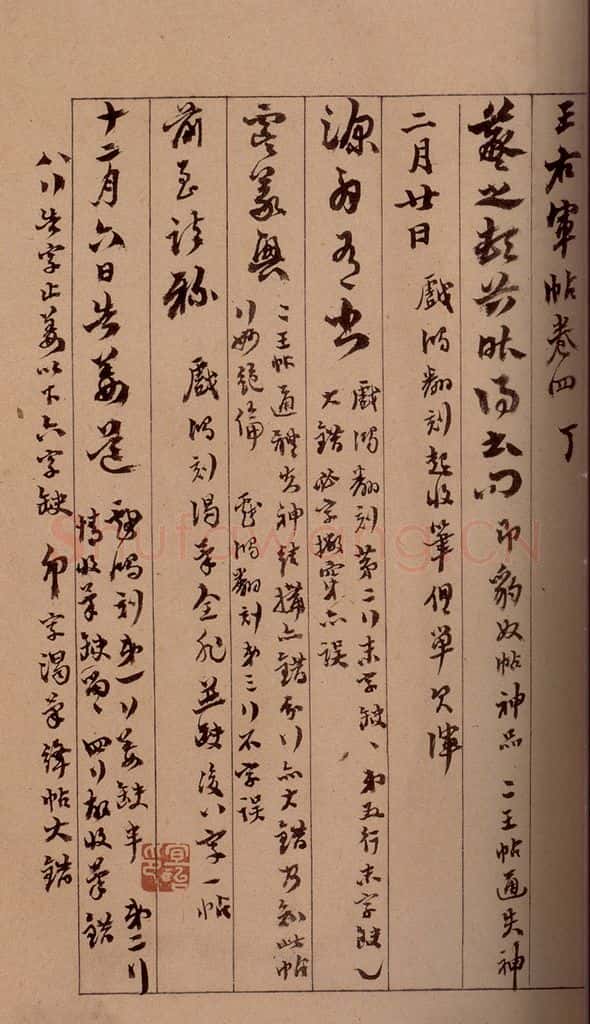 王右軍帖卷四 丁
羲之頓首昨得書問 即豹奴帖神品 二王帖通失神
二月廿日 戲鴻翻刻起收筆但單欠渾
源書 戲鴻翻刻第二行末字缺八第五行末字缺乀
大錯 必字撇穿亦誤
雲義興 二王帖通體失神結搆亦錯分行亦大錯乃知此帖
行妙絕倫 戲鴻翻刻第三行不字誤
前至諸 戲鴻刻渴筆全非並缺後八字一帖
十二月六日告姜道 戲鴻刻第一行姜缺半 第二行
情收筆缺 四行敬收筆錯
八行告字止姜以下六字缺 卯字渴筆絳帖大錯
Shufawang.CN